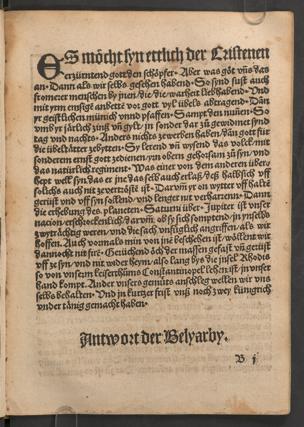 ES möcht syn ettlich der Cristenen
erzürntend gott den schöpfer. Aber was göt vnns das
an. Dann als wir selbs gesehen habend. So synd sust auch
fromer menschen by jnen/ die die warheit lieb habend. Vnd
mit irm ernst anbettē vor gott vyl übels abtragend. Dan
ir geistlichen münich vnnd pfaffen. Sampt den nünen. So
jn sonder das zů gewidmet synd
tag vnd nachts. Anders nichts zewerben haben/ dan gott für
die übeltäter zebytten. Sy lerend vn wysend das volck/ mit
sonderem ernst gott zedienen/ yn obern gehorsam zů syn/ vnd
das natürlich regiment. Was einer von dem anderen über-
hept welt syn/ das er jne das selb auch erlaß/ deß halb sich vff
solichs auch nit ze ist. Darvm yr on wytter vff halte
gerüst vnd vff syn sollend/ vnd lenger nit verharrend. Dann
die erhebung des planeten. Saturni über Jupiter ist vnser
nacion erschrockenlich/ darvm ob sy sich somptend/ jn ynselbs
zwyträchtig weren/ vnd die sach vnfüglich angriffen/ als wir
hoffen. Auch vormals min von jne beschehen ist/ wöllent wir
dannocht nit fire. Gerüchend öch der massen gefast vn gerüst
vff ze syn/ vnd nit wider heym/ als lang bys die jnsel Rhodis
so von vnserm keiserthůms Constantinopel lehen ist/ jn vnser
hand kompt. Ander vnsers gemüts anschleg wellen wir vns
selbs behalten. Vnd jn kurtzer frist vnß noch zwey küngrich
vnder tänig gemacht haben.
Antwort der Belyarby.
B j